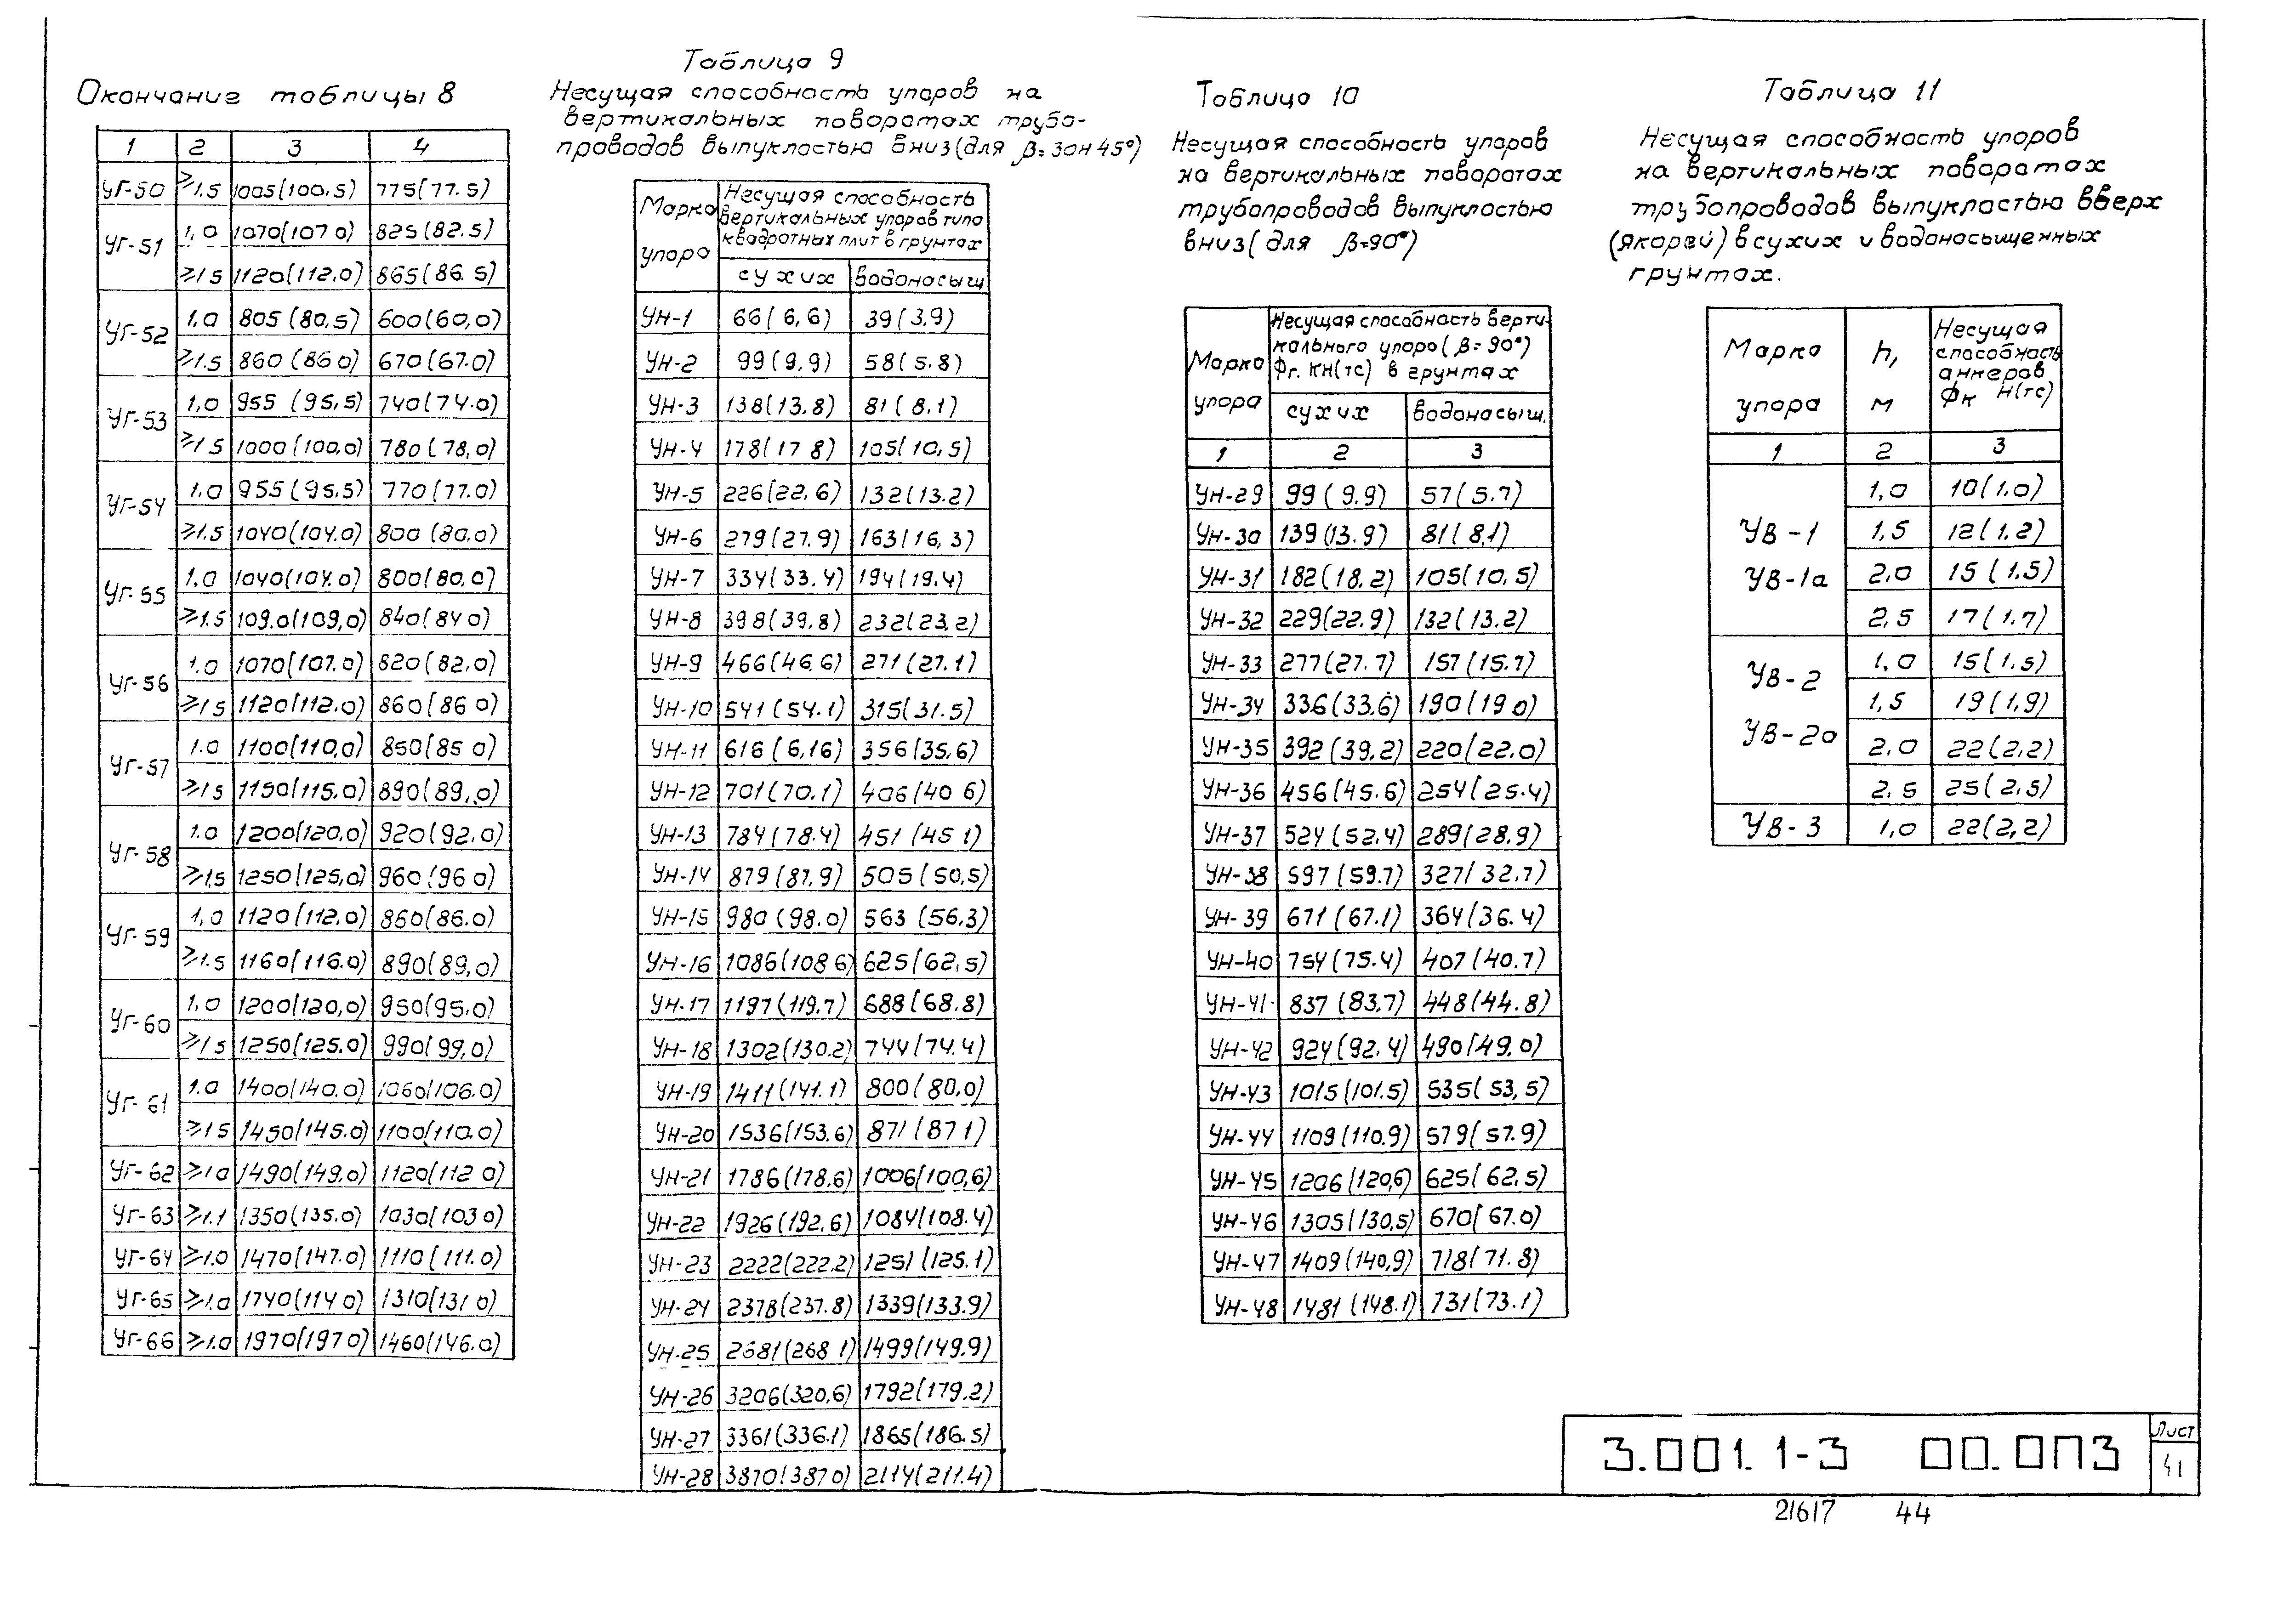 Окончание таблицы 8
1 2 3 4
УГ-50 ≥1.5 1005(100,5) 775(77.5)
УГ-51 1,0 1070(107 0) 825(82.5)
≥1 5 1120(112,0) 865(86.5)
УГ-52 1,0 805(80,5) 600(60,0)
≥1.5 860(86 0) 670(67.0)
УГ-53 1,0 955(95,5) 740(74.0)
≥1 5 1000(100,0) 780(78,0)
УГ-54 1,0 955(95,5) 770(77.0)
≥1.5 1040(104.0) 800(80,0)
УГ-55 1,0 1040(104.0) 800(80,0)
≥1.5 109.0(109,0) 840(84 0)
УГ-56 1,0 1070(107.0) 820(82.0)
≥1 5 1120(112.0) 860(86 0)
УГ-57 1.0 1100(110,0) 850(85 0)
≥1 5 1150(115,0) 890(89,0)
УГ-58 1.0 1200(120,0) 920(92.0)
≥1,5 1250(125,0) 960(96 0)
УГ-59 1,0 1120(112,0) 860(86.0)
≥1.5 1160(116.0) 890(89,0)
УГ-60 1,0 1200(120,0) 950(95.0)
≥1 5 1250(125.0) 990(99,0)
УГ-61 1.0 1400(140.0) 1060(106.0)
≥1 5 1450(145.0) 1100(110.0)
УГ-62 ≥1 0 1490(149.0) 1120(112 0)
УГ-63 ≥1.1 1350(135.0) 1030(103 0)
УГ-64 ≥1.0 1470(147.0) 1110(111.0)
УГ-65 ≥1.0 1740(114 0) 1310(131 0)
УГ-66 ≥1.0 1970(197 0) 1460(146.0)
Таблица 9
Несущая способность упоров на
вертикальных поворотах трубо-
проводов выпуклостью вниз(для β=30и45°)
Марка упора
Несущая способность
вертикальных упоров типа
квадротных плит в грунтах
сухих водонасыщ
УН-1 66(6,6) 39(3,9)
УН-2 99(9,9) 58(5.8)
УН-3 138(13.8) 81(8,1)
УН-4 178(17 8) 105(10,5)
УН-5 226(22.6) 132(13.2)
УН-6 279(27.9) 163(16,3)
УН-7 334(33.4) 194(19.4)
УН-8 398(39,8) 232(23,2)
УН-9 466(46,6) 271(27.1)
УН-10 541(54.1) 315(31.5)
УН-11 616(6,16) 356(35,6)
УН-12 701(70.1) 406(40 6)
УН-13 784(78.4) 451(45 1)
УН-14 879(87,9) 505(50,5)
УН-15 980(98.0) 563(56,3)
УН-16 1086(108 6) 625(62,5)
УН-17 1197(119,7) 688(68.8)
УН-18 1302(130.2) 744(74.4)
УН-19 1411(141.1) 800(80,0)
УН-20 1536(153,6) 871(87 1)
УН-21 1786(178,6) 1006(100,6)
УН-22 1926(192.6) 1084(108.4)
УН-23 2222(222.2) 1251(125.1)
УН-24 2378(237.8) 1339(133.9)
УН-25 2681(268 1) 1499(149.9)
УН-26 3206(320,6) 1792(179.2)
УН-27 3361(336.1) 1865(186.5)
УН-28 3870(387 0) 2114(211.4)
Таблица 10
Несущая способность упоров
на вертикальных поворотах
трубопроводов выпуклостью
вниз(для β=90°)
Марка упора
Несущая способность верти-
кального упора(β=90°)
Фг. КН(тс) в грунтах
сухих водонасыщ.
1 2 3
УН-29 99(9.9) 57(5.7)
УН-30 139(13.9) 81(8,1)
УН-31 182(18,2) 105(10,5)
УН-32 229(22.9) 132(13.2)
УН-33 277(27.7) 157(15.7)
УН-34 336(33,6) 190(19 0)
УН-35 392(39,2) 220(22,0)
УН-36 456(45.6) 254(25.4)
УН-37 524(52,4) 289(28.9)
УН-38 597(59.7) 327(32.7)
УН-39 671(67.1) 364(36.4)
УН-40 754(75.4) 407(40.7)
УН-41 837(83,7) 448(44.8)
УН-42 924(92.4) 490(49.0)
УН-43 1015(101.5) 535(53,5)
УН-44 1109(110.9) 579(57.9)
УН-45 1206(120,6) 625(62,5)
УН-46 1305(130,5) 670(67.0)
УН-47 1409(140,9) 718(71.8)
УН-48 1481(148.1) 731(73.1)
Таблица 11
Несущая способность упоров
на вертикальных поворотах
трубопроводов выпуклостью вверх
(якорей) в сухих и водонасыщенных
грунтах.
Марка упора
h, м
Несущая
способность
анкеров
Фк Н(тс)
1 2 3
УВ-1 УВ-1а 1,0 10(1,0)
1,5 12(1,2)
2,0 15(1,5)
2,5 17(1,7)
УВ-2 УВ-2а 1,0 15(1,5)
1,5 19(1,9)
2,0 22(2,2)
2,5 25(2,5)
УВ-3 1,0 22(2,2)
3.001.1-3 00.0ПЗ
Лист
41
21617 44